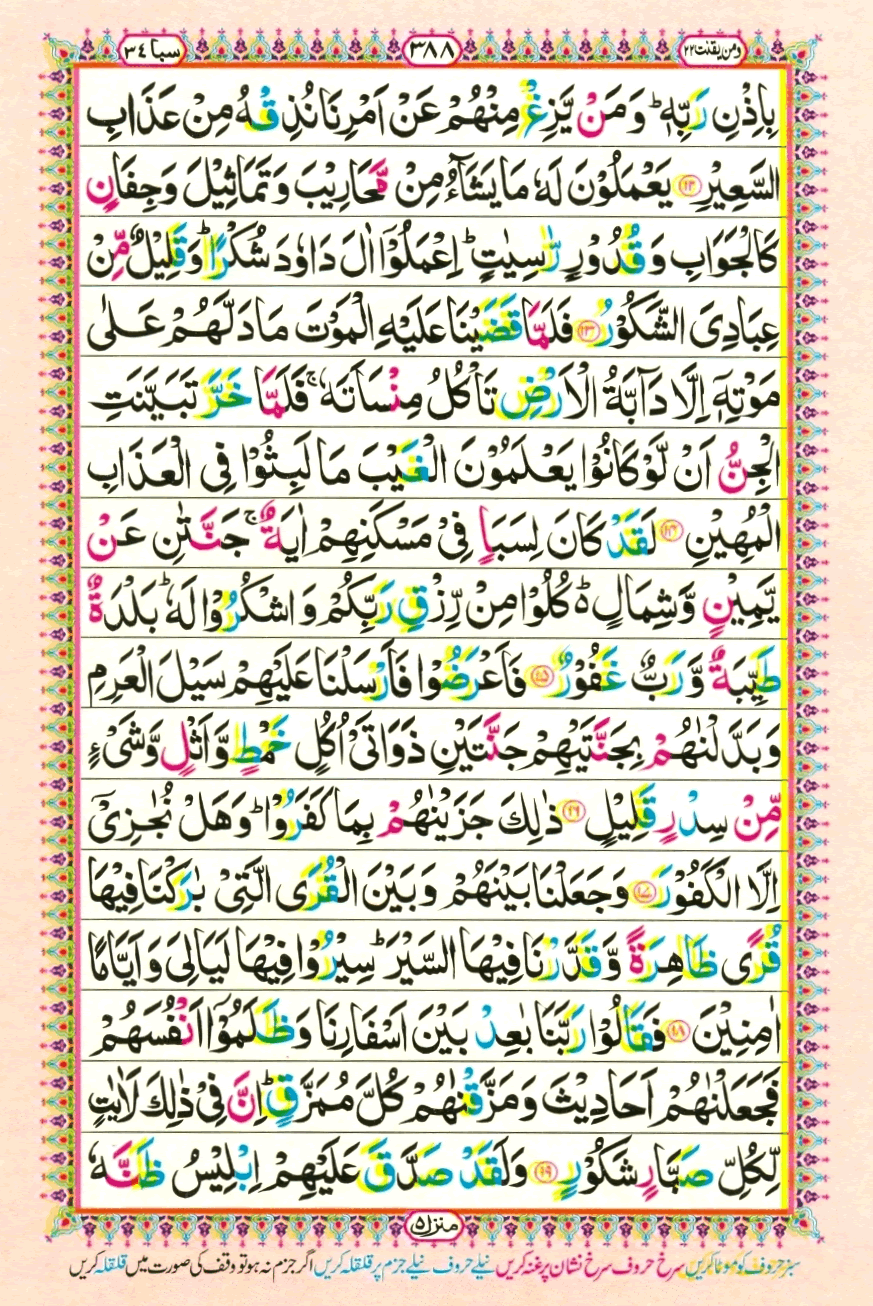 ومن یقنت ٢٢
٣٨٨
سبا ٣٤
بِاِذْنِ رَبِّهٖ ؕ وَمَنْ یَّزِغْ مِنْهُمْ عَنْ اَمْرِنَا نُذِقْهُ مِنْ عَذَابِ
السَّعِیْرِ ۝١٢ یَعْمَلُوْنَ لَهٗ مَا یَشَآءُ مِنْ مَّحَارِیْبَ وَتَمَاثِیْلَ وَجِفَانٍ
كَالْجَوَابِ وَقُدُوْرٍ رّٰسِیٰتٍ ؕ اِعْمَلُوْۤا اٰلَ دَاوٗدَ شُكْرًا ؕ وَقَلِیْلٌ مِّنْ
عِبَادِیَ الشَّكُوْرُ ۝١٣ فَلَمَّا قَضَیْنَا عَلَیْهِ الْمَوْتَ مَا دَلَّهُمْ عَلٰی
مَوْتِهٖۤ اِلَّا دَآبَّةُ الْاَرْضِ تَاْكُلُ مِنْسَاَتَهٗ ۚ فَلَمَّا خَرَّ تَبَیَّنَتِ
الْجِنُّ اَنْ لَّوْ كَانُوْا یَعْلَمُوْنَ الْغَیْبَ مَا لَبِثُوْا فِی الْعَذَابِ
الْمُهِیْنِ ۝١٤ لَقَدْ كَانَ لِسَبَاٍ فِیْ مَسْكَنِهِمْ اٰیَةٌ ۚ جَنَّتٰنِ عَنْ
یَّمِیْنٍ وَّشِمَالٍ ؕ۬ كُلُوْا مِنْ رِّزْقِ رَبِّكُمْ وَاشْكُرُوْا لَهٗ ؕ بَلْدَةٌ
طَیِّبَةٌ وَّرَبٌّ غَفُوْرٌ ۝١٥ فَاَعْرَضُوْا فَاَرْسَلْنَا عَلَیْهِمْ سَیْلَ الْعَرِمِ
وَبَدَّلْنٰهُمْ بِجَنَّتَیْهِمْ جَنَّتَیْنِ ذَوَاتَیْ اُكُلٍ خَمْطٍ وَّاَثْلٍ وَّشَیْءٍ
مِّنْ سِدْرٍ قَلِیْلٍ ۝١٦ ذٰلِكَ جَزَیْنٰهُمْ بِمَا كَفَرُوْا ؕ وَهَلْ نُجٰزِیْۤ
اِلَّا الْكَفُوْرَ ۝١٧ وَجَعَلْنَا بَیْنَهُمْ وَبَیْنَ الْقُرَی الَّتِیْ بٰرَكْنَا فِیْهَا
قُرًی ظَاهِرَةً وَّقَدَّرْنَا فِیْهَا السَّیْرَ ؕ سِیْرُوْا فِیْهَا لَیَالِیَ وَاَیَّامًا
اٰمِنِیْنَ ۝١٨ فَقَالُوْا رَبَّنَا بٰعِدْ بَیْنَ اَسْفَارِنَا وَظَلَمُوْۤا اَنْفُسَهُمْ
فَجَعَلْنٰهُمْ اَحَادِیْثَ وَمَزَّقْنٰهُمْ كُلَّ مُمَزَّقٍ ؕ اِنَّ فِیْ ذٰلِكَ لَاٰیٰتٍ
لِّكُلِّ صَبَّارٍ شَكُوْرٍ ۝١٩ وَلَقَدْ صَدَّقَ عَلَیْهِمْ اِبْلِیْسُ ظَنَّهٗ
منزل ۵
سبز حروف کو موٹا کریں سرخ حروف سرخ نشان پر غنہ کریں نیلے حروف نیلے جزم پر قلقلہ کریں اگر جزم نہ ہو تو وقف کی صورت میں قلقلہ کریں